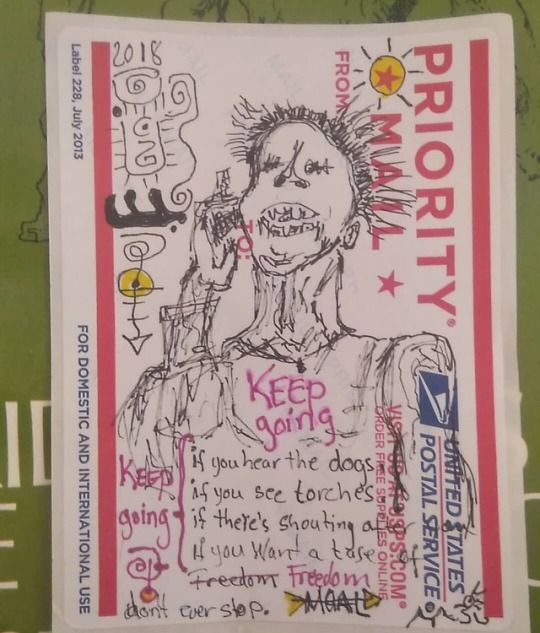 2018
PRIORITY®
MAIL
FROM
TO:
UNITED STATES
POSTAL SERVICE®
VISIT USPS.COM®
ORDER FREE SUPPLIES ONLINE
Label 228, July 2013
FOR DOMESTIC AND INTERNATIONAL USE
KEEP
going
KEEP
going
if you hear the dogs
if you see torches
if there's shouting after
if you want a tase of
Freedom Freedom
dont ever stop.